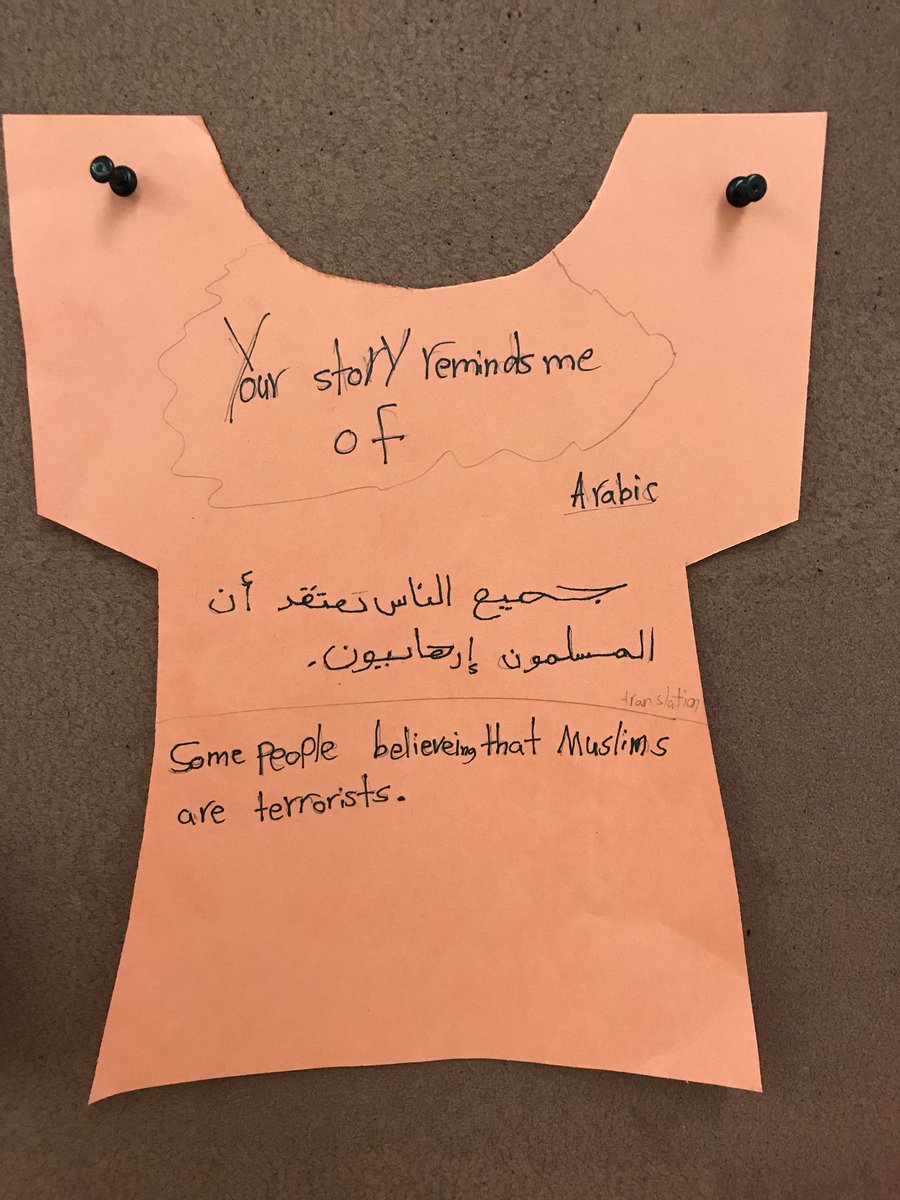 Your story reminds me
of
Arabic
جميع الناس تعتقد أن
المسلمون إرهابيون.
translation
Some people believeing that Muslims
are terrorists.